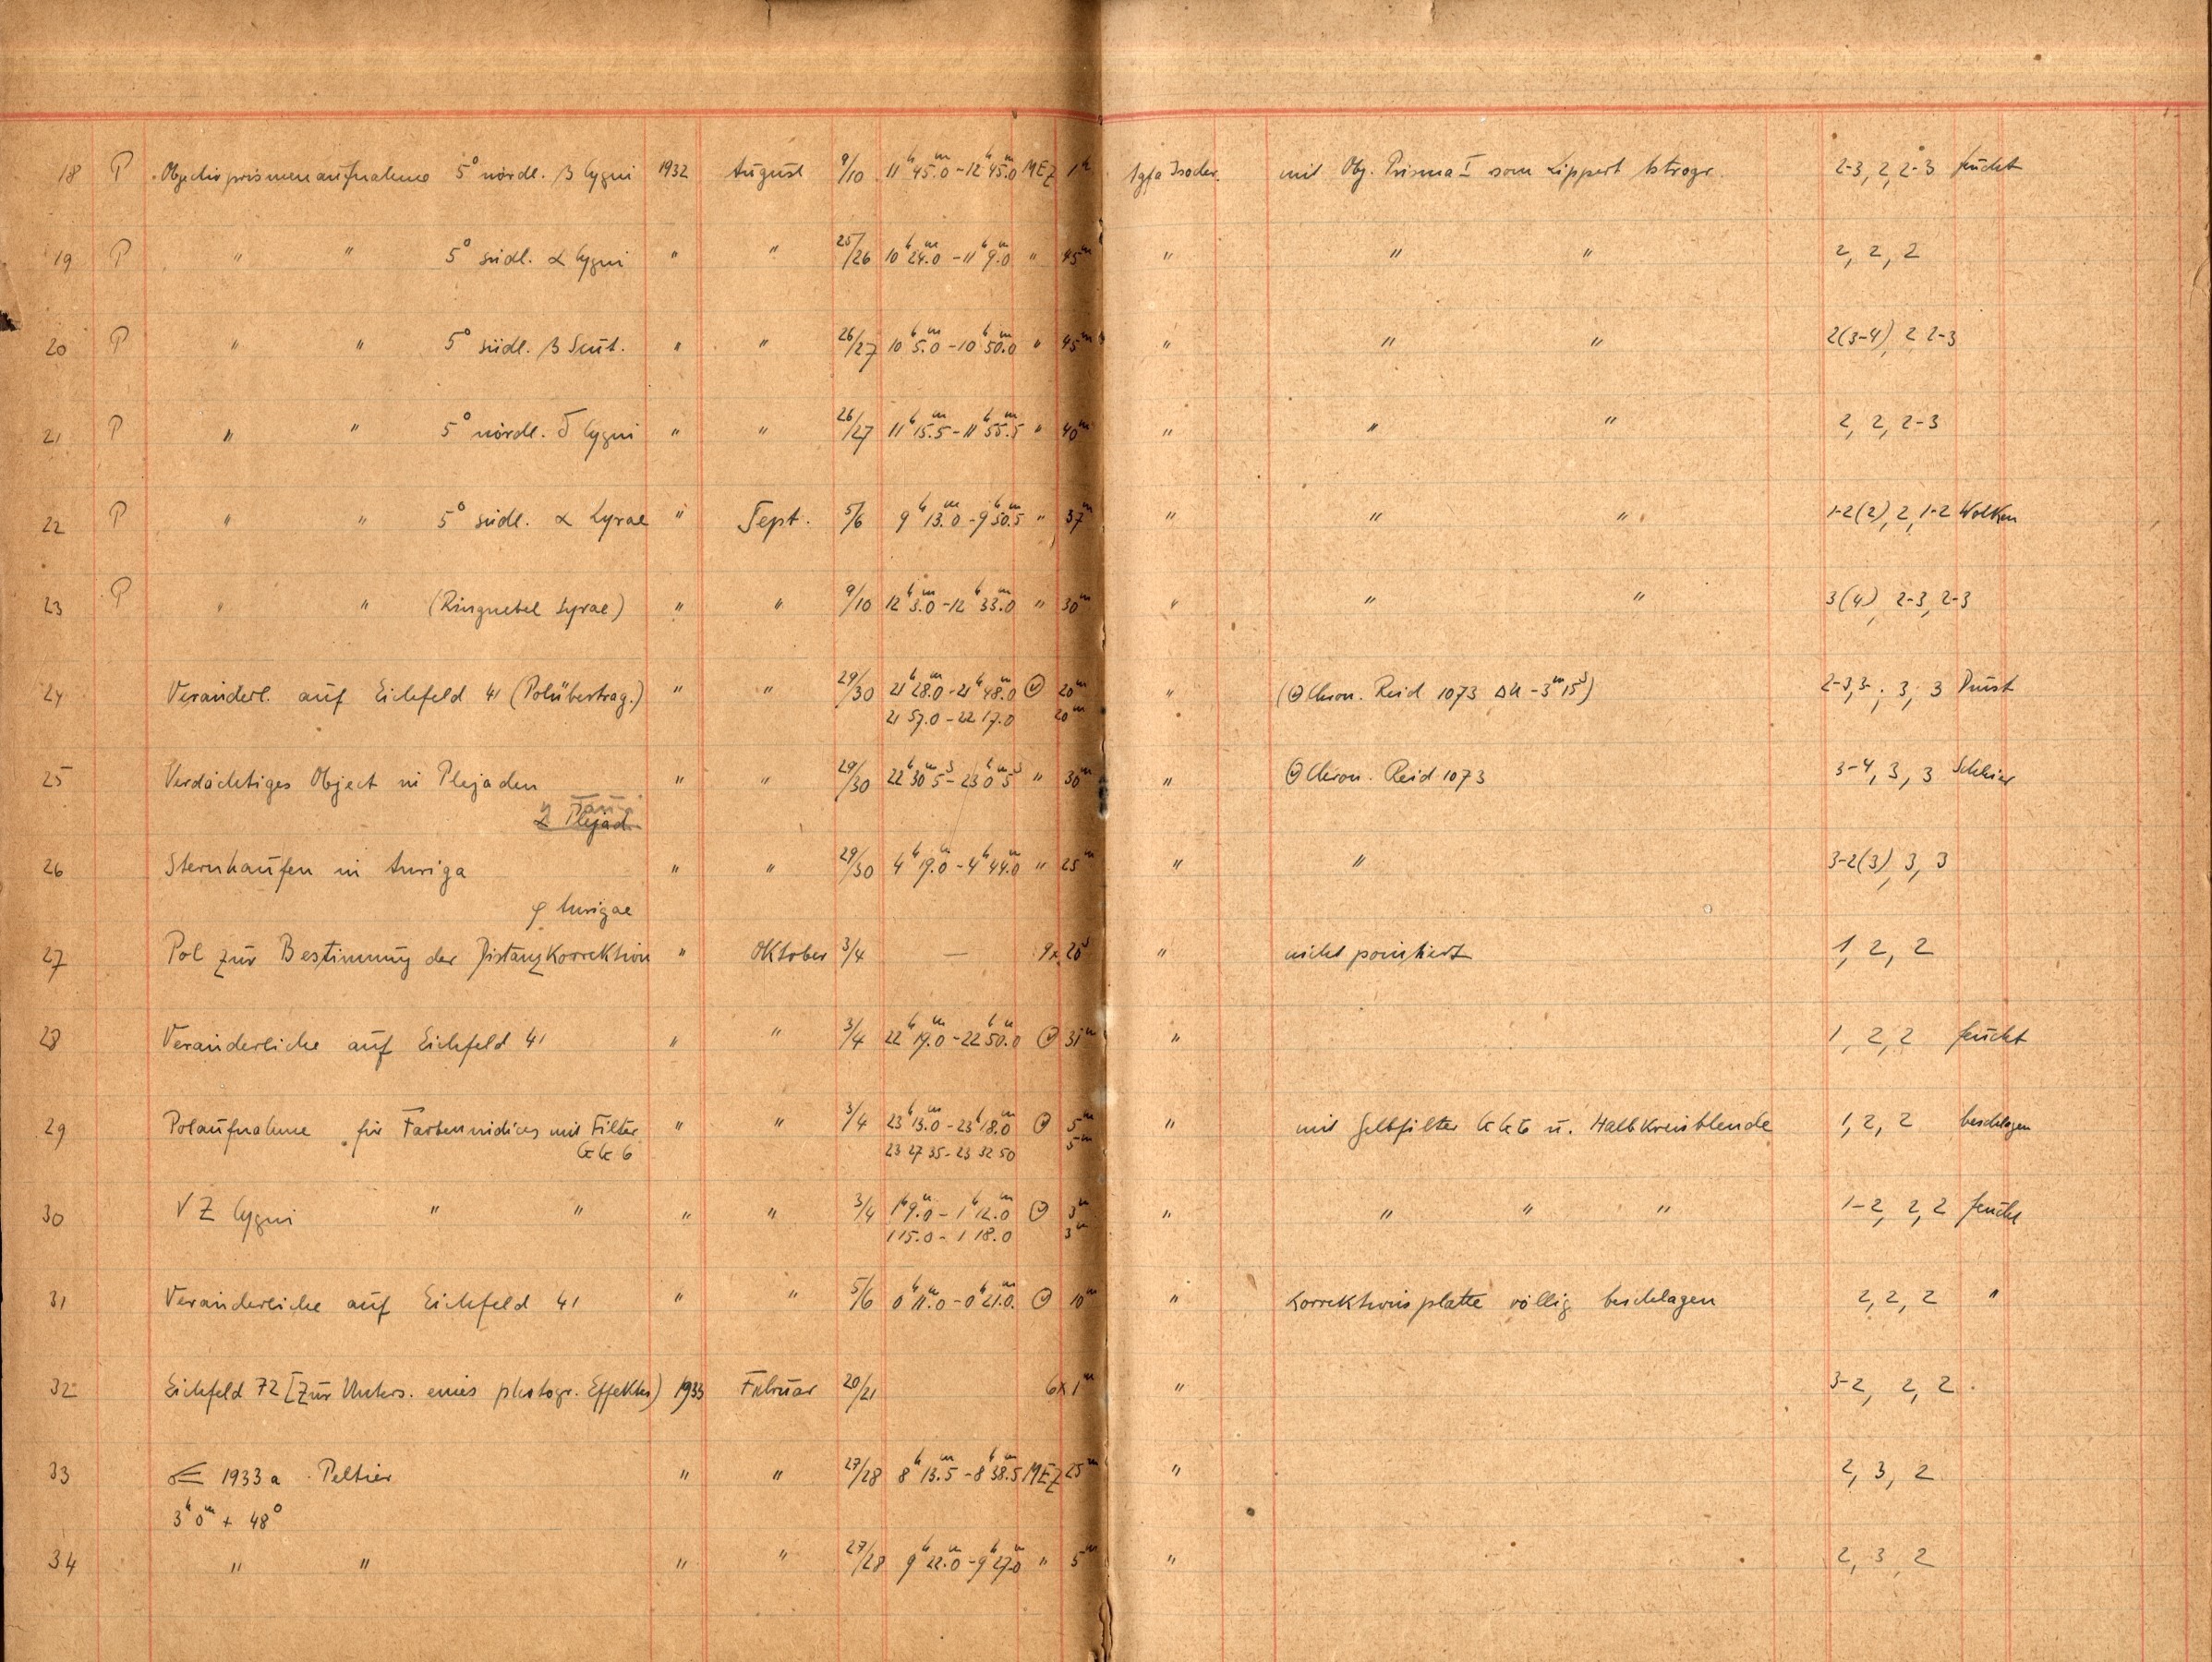 18 P Objectivprismenaufnahme 5° nördl. β Cygni 1932 August 9/10 11ʰ45.0ᵐ-12ʰ45.0ᵐ MEZ 1ʰ Agfa Isochr. mit Obj. Prisma I vom Lippert Astrogr. 2-3, 2, 2-3 feucht
19 P " " 5° südl. α Cygni " " 25/26 10ʰ24.0ᵐ-11ʰ9.0ᵐ " 45ᵐ " " " 2, 2, 2
20 P " " 5° südl. β Scut. " " 26/27 10ʰ5.0ᵐ-10ʰ50.0ᵐ " 45ᵐ " " " 2(3-4), 2 2-3
21 P " " 5° nördl. δ Cygni " " 26/27 11ʰ15.5ᵐ-11ʰ55.5ᵐ " 40ᵐ " " " 2, 2, 2-3
22 P " " 5° südl. α Lyrae " Sept. 5/6 9ʰ13.0ᵐ-9ʰ50.5ᵐ " 37ᵐ " " " 1-2(2), 2, 1-2 Wolken
23 P " " (Ringnebel Lyrae) " " 9/10 12ʰ3.0ᵐ-12ʰ33.0ᵐ " 30ᵐ " " " 3(4), 2-3, 2-3
24 Veränderl. auf Eichfeld 41 (Polübertrag.) " " 29/30 21ʰ28.0ᵐ-21ʰ48.0ᵐ 20ᵐ " (Chron. Reid 1073 Δu -3ᵐ15ˢ) 2-3,3-, 3, 3 Dunst
21 57.0-22 17.0 20ᵐ
25 Verdächtiges Object in Plejaden " " 29/30 22ʰ30ᵐ5ˢ-23ʰ0ᵐ5ˢ " 30ᵐ " Chron. Reid 1073 3-4, 3, 3 Schleier
η Tauri
Plejad.
26 Sternhaufen in Auriga " " 29/30 4ʰ19.0ᵐ-4ʰ44.0ᵐ " 25ᵐ " " 3-2(3), 3, 3
φ Aurigae
27 Pol zur Bestimmung der Distanzkorrektion " Oktober 3/4 — 9x20ˢ " nicht pointiert 1, 2, 2
28 Veränderliche auf Eichfeld 41 " " 3/4 22ʰ19.0ᵐ-22ʰ50.0ᵐ 31ᵐ " 1, 2, 2 feucht
29 Polaufnahme für Farbenindices mit Filter " " 3/4 23ʰ13.0ᵐ-23ʰ18.0ᵐ 5ᵐ " mit Gelbfilter GG6 u. Halbkreisblende 1, 2, 2 beschlagen
GG6 23 27 35-23 32 50 5ᵐ
30 VZ Cygni " " " " 3/4 1ʰ9.0ᵐ-1ʰ12.0ᵐ 3ᵐ " " " " 1-2, 2, 2 feucht
1 15.0-1 18.0 3ᵐ
31 Veränderliche auf Eichfeld 41 " " 5/6 0ʰ11.0ᵐ-0ʰ21.0ᵐ 10ᵐ " Korrektionsplatte völlig beschlagen 2, 2, 2 "
32 Eichfeld 72 [Zur Unters. eines photogr. Effektes) 1933 Februar 20/21 6x1ᵐ " 3-2, 2, 2
33 1933a Peltier " " 27/28 8ʰ13.5ᵐ-8ʰ38.5ᵐ MEZ 25ᵐ " 2, 3, 2
3ʰ0ᵐ + 48°
34 " " " " 27/28 9ʰ22.0ᵐ-9ʰ27.0ᵐ " 5ᵐ " 2, 3, 2